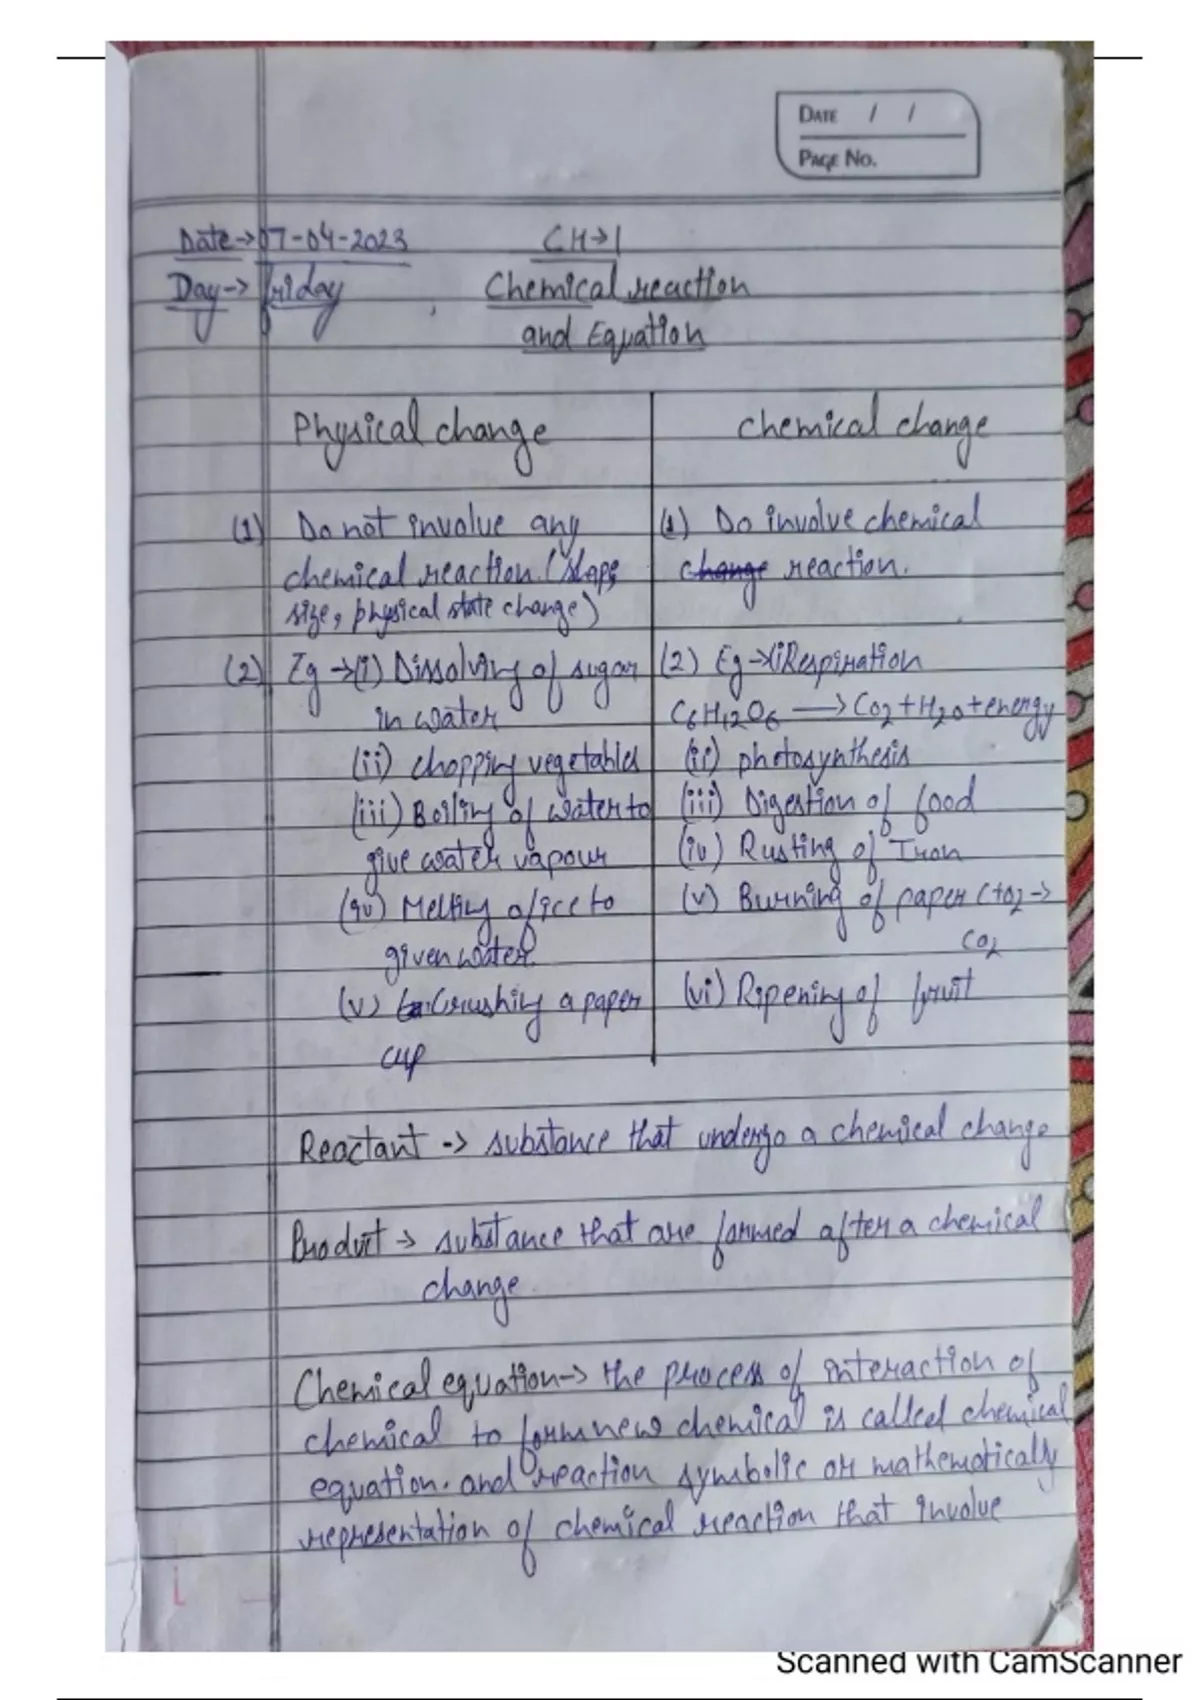 DATE / /
PAGE NO.
Date→07-04-2023
CH→1
Day→ friday
Chemical reaction
and Equation
Physical change
chemical change
(1) Do not involve any
chemical reaction. (shape,
size, physical state change)
(2) Eg →(i) Dissolving of sugar
in water
(ii) chopping vegetables
(iii) Boiling of water to
give water vapour
(iv) Melting of ice to
given water.
(v) Crushing a paper
cup
(1) Do involve chemical
change reaction.
(2) Eg→(i Respiration
C6H12O6 ⟶ CO2 + H2O + energy
(ii) photosynthesis
(iii) Digestion of food
(iv) Rusting of Iron
(v) Burning of paper C+O2→
CO2
(vi) Ripening of fruit
Reactant -> substance that undergo a chemical change
Product → substance that are formed after a chemical
change.
Chemical equation→ the process of interaction of
chemical to form new chemical is called chemical
equation. and reaction symbolic or mathematically
representation of chemical reaction that involve
Scanned with CamScanner